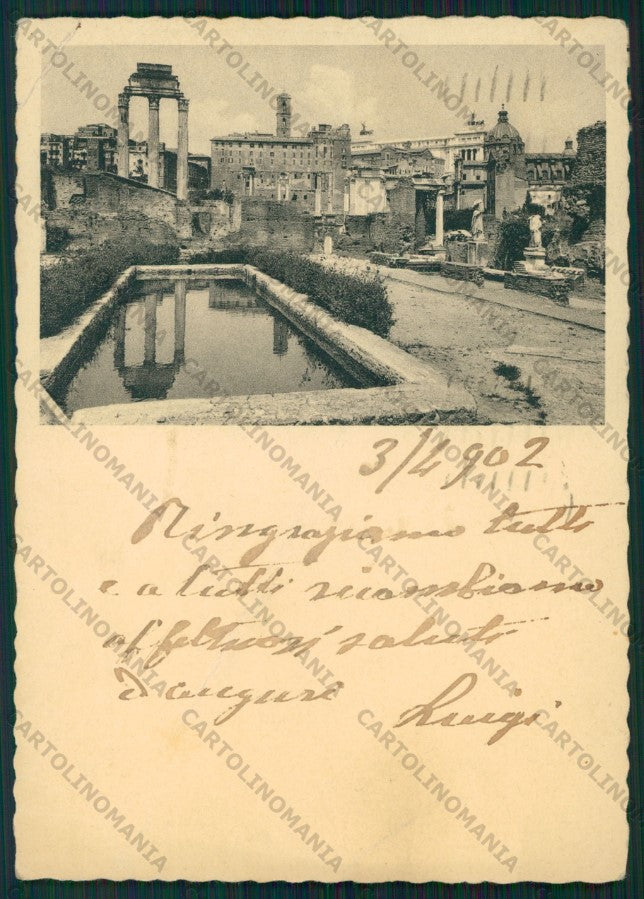 3/4 902
Ringraziamo tutti
e a tutti ricambiamo
affettuosi saluti
d'auguri
Luigi
CARTOLINOMANIA